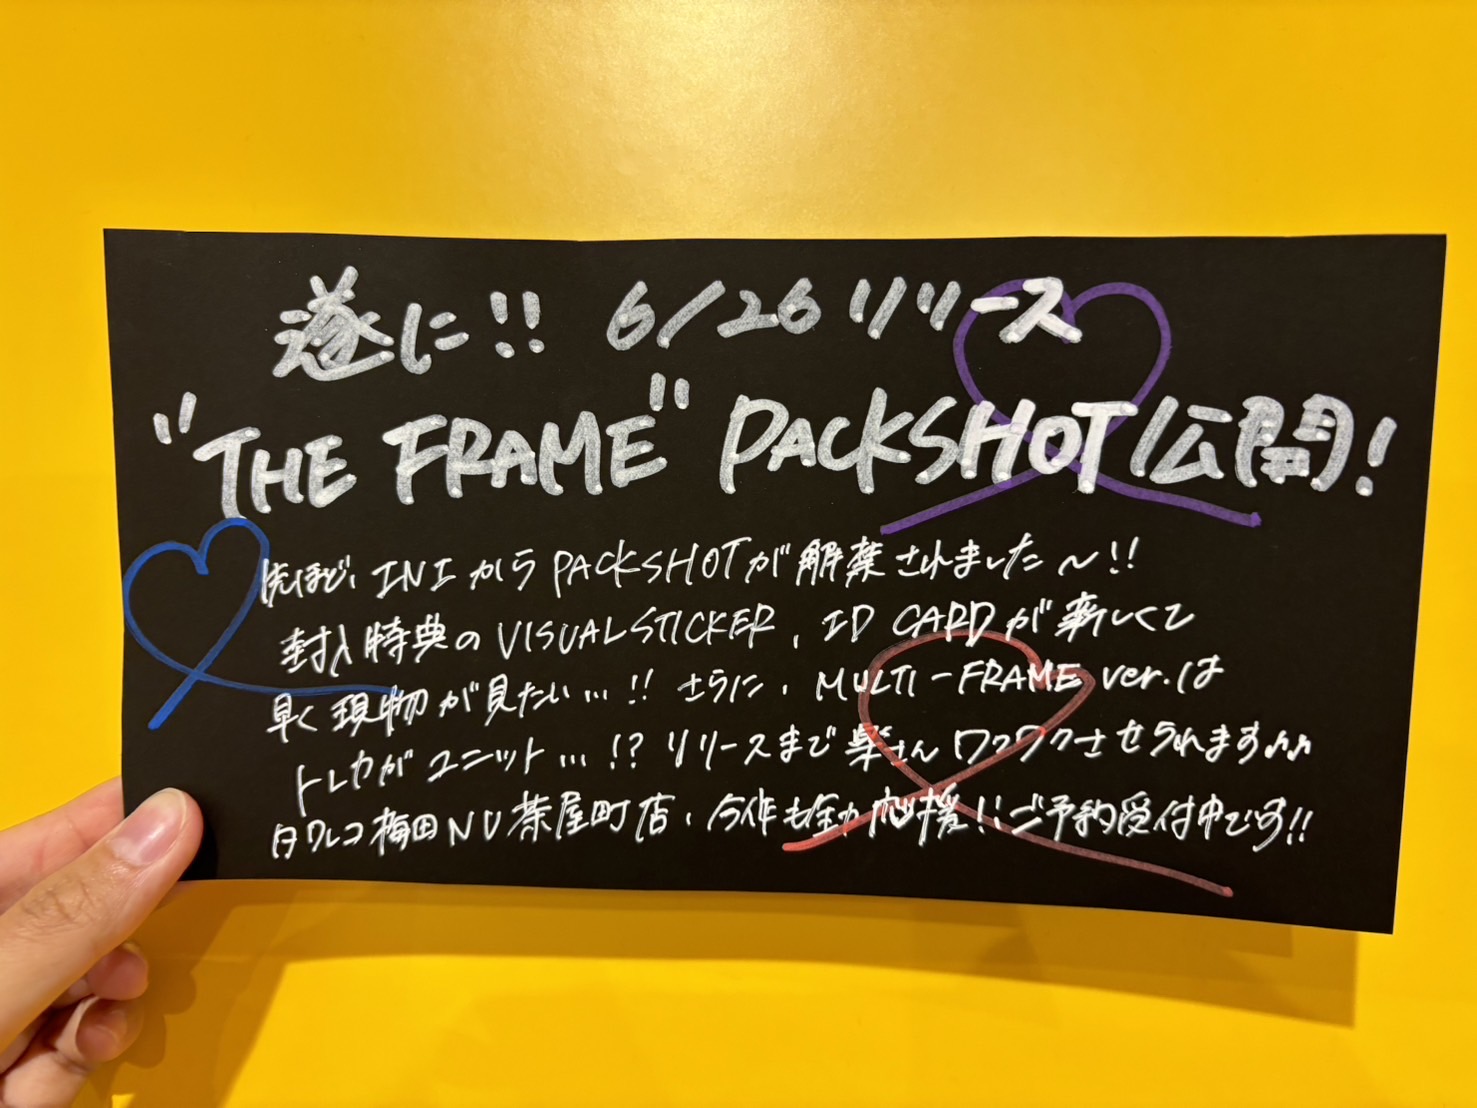 遂に!! 6/26リリース
"THE FRAME" PACKSHOT公開!
先ほど、INIからPACKSHOTが解禁されました〜!!
封入特典のVISUALSTICKER、ID CARDが新しくて
早く現物が見たい…!! さらに、MULTI-FRAME ver.は
トレカがユニット…!? リリースまで楽さんワクワクさせられます♪♪
タワレコ梅田NU茶屋町店、今作も全力応援!! ご予約受付中です!!